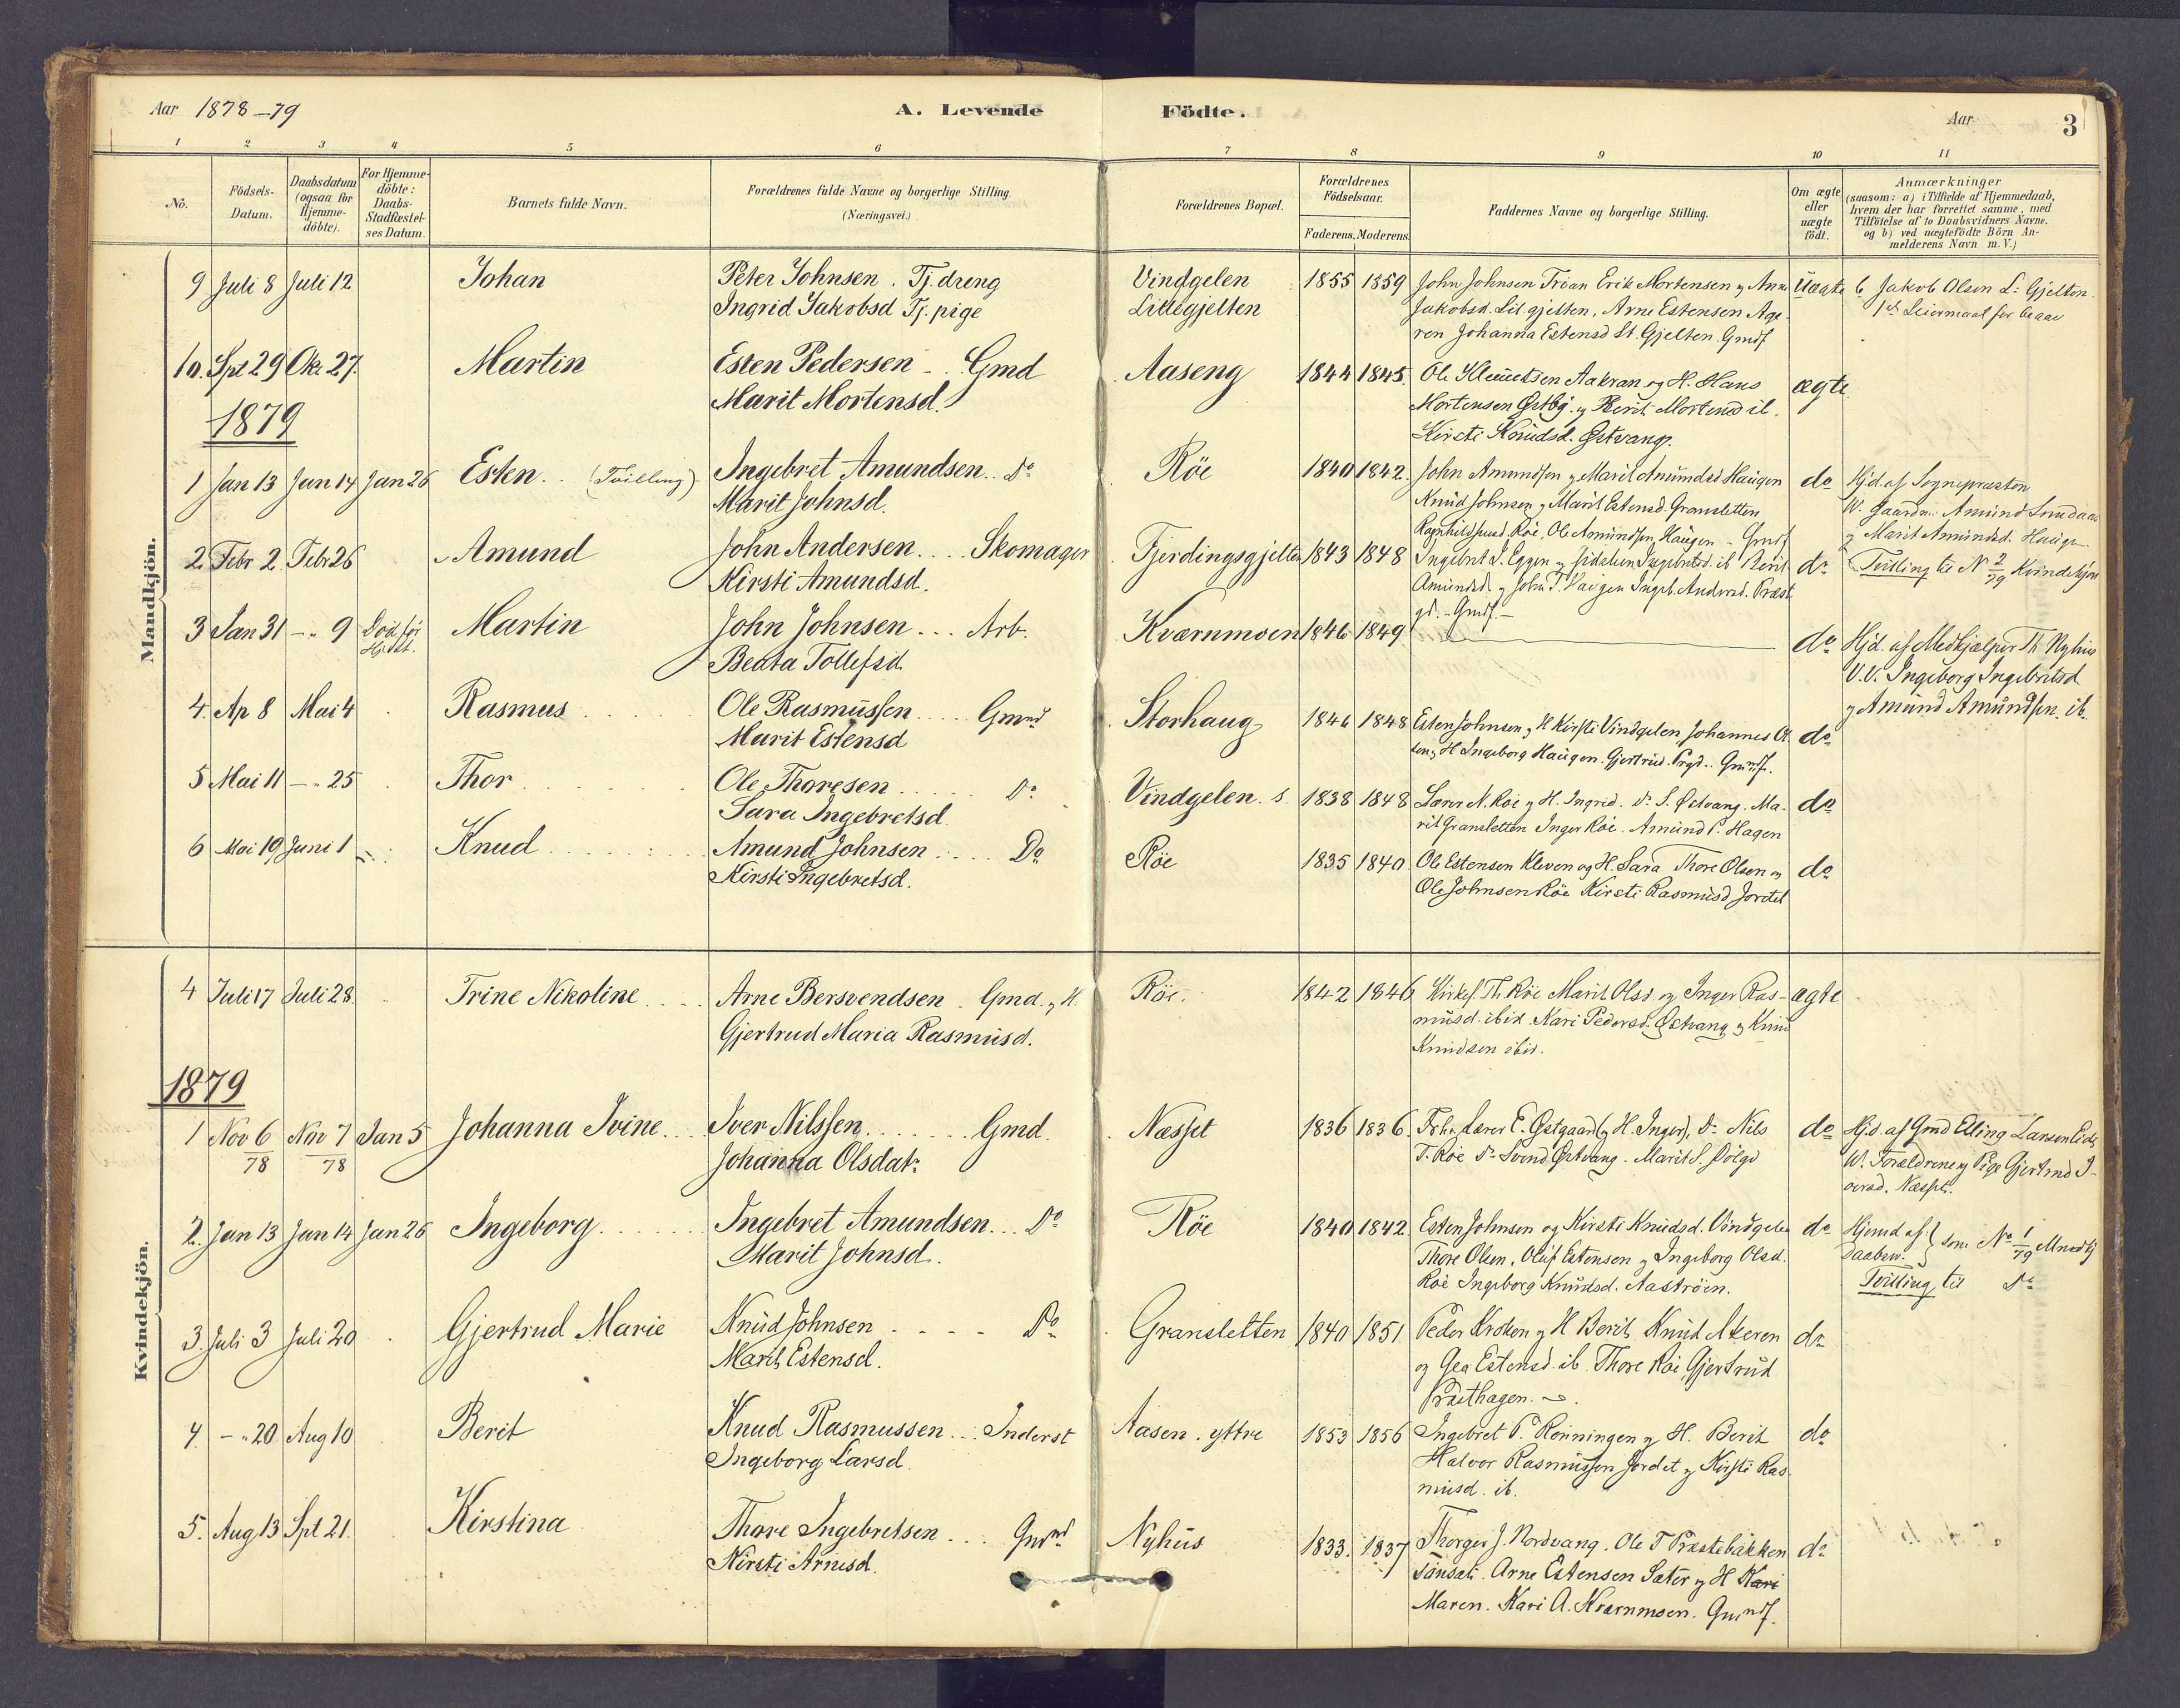 Aar 1878-79 A. Levende Födte. Aar 3
1 2 3 4 5 6 7 8 9 10 11
No. Födsels-Datum. Daabsdatum (ogsaa for Hjemme-döbte). For Hjemme-döbte: Daabs-Stadfæstel-ses Datum. Barnets fulde Navn. Forældrenes fulde Navne og borgerlige Stilling. (Næringsvei.) Forældrenes Bopæl. Forældrenes Födselsaar. Faderens. Moderens. Faddernes Navne og borgerlige Stilling. Om ægte eller uægte födt. Anmærkninger (saasom: a) i Tilfælde af Hjemmedaab, hvem der har forrettet samme, med Tilföielse af to Daabsvidners Navne. og b) ved uægtefödte Börn An-melderens Navn m. V.)
Mandkjön.
9 Juli 8 Juli 12 Johan Peter Johnsen. Tj. dreng Vindgelen 1855 1859 John Johnsen Troan Erik Mortensen og Anne Uægte 6 Jakob Olsen L: Gjelten.
Ingrid Jakobsd Tj. pige Littlegjelten Jakobsd. Lil. gjelten, Arne Estensen 1st Leiermaal for begge
Johanna Estensd Lt. Gjelten. Gmdf
10. Spt 29 Okt 27. Martin Esten Pedersen Gmd Aaseng 1844 1845. Ole Aakran og H. Hans ægte.
Marit Mortensd. Mortensen Østby. og Berit Mortensd ib.
1879 Kirsti Knudsd. Østvang.
1 Jan 13 Jan 14 Jan 26 Esten.. (Tvilling) Ingebret Amundsen.. Do Röe 1840 1842. John Amundsen og Marit Amundsd Haugen do Hjd. af Sognepræsten
Marit Johnsd. Knud Johnsen og Marit Estensd. Gransletten W. Gaardm. Amund
Röe, Ole Amundsen Haugen - Gmdf og Marit Amundsd. Haugen.
2 Febr 2. Febr 26 Amund John Andersen.... Skomager Fjerdingsgjelten 1843 1848 Ingebret I. Eggen og Ingebretsd. ib Berit do Tvilling til No 2/79 Kvindekjön
Kirsti Amundsd. Amundsd. og John Haugen Ingeb. Andersd. Præst
gd. - Gmdf -
3 Jan 31 -" 9 Död før Martin John Johnsen... Arb. Kværnmoen 1846 1849 do Hjd. af Medhjælper Th Nyhus
Beata Tollefsd V.V. Ingeborg Ingebretsd.
4. Ap 8 Mai 4 Rasmus Ole Rasmussen.... Gmnd Storhaug 1846 1848 Esten Johnsen og H Kirsti Vindgelen Johannes Ol do og Amund Amundsen. ib.
Marit Estensd sen og H Ingeborg Haugen. Gjertrud. Prgd.. Gmndf.
5 Mai 11 -" 25 Thor Ole Thoresen..... Do Vindgelen. s. 1838 1848 Lærer N. Röe og H. Ingrid. Do S. Østvang. Ma- do
Sara Ingebretsd. rit Gransletten Inger Röe. Amund P. Hagen
6 Mai 19 Juni 1 Knud Amund Johnsen.... Do Röe 1835 1840 Ole Estensen Kleven og H. Sara Thore Olsen og do
Kirsti Ingebretsd. Ole Johnsen Röe Kirsti Rasmusd Jordet
Kvindekjön.
4 Juli 17 Juli 28. Trine Nikoline Arne Bersvendsen. Gmd. og H. Röe. 1842 1846 Kirkes. Th. Röe Marit Olsd. og Inger Ras- ægte
Gjertrud Maria Rasmusd. musd. ibid. Kari Pedersd. Østvang og Knud
Knudsen ibid.
1879
1 Nov 6/78 Nov 7/78 Jan 5 Johanna Ivine.. Iver Nilssen....... Gmd. Næsset 1836 1836. Fhv. Lærer E. Østgaard (og H. Inger), Do Nils do Hjd. af Gmd Elling Larsen
Johanna Olsdatr T. Röe Do Svend Østvang. Marit S. W. Forældrene og Pige Gjertrud I-
versd. Næsset.
2. Jan 13 Jan 14 Jan 26 Ingeborg Ingebret Amundsen... Do Röe 1840 1842. Esten Johnsen og Kirsti Knudsd. Vindgelen do Hjemd. af } som No 1/79 Mandkj
Marit Johnsd. Thore Olsen, Oluf Estensen og Ingeborg Olsd. Daabsv.
Röe Ingeborg Knudsd. Aaströen. Tvilling til Do
3. Juli 3 Juli 20 Gjertrud Marie Knud Johnsen.... Do Gransletten 1840 1851 Peder Kroken og H Berit, Knud Akeren do
Marit Estensd. og Gea Estensd. ib. Thore Röe Gjertrud
Præsthagen.
4. -" 20 Aug 10 Berit Knud Rasmussen... Inderst Aasen. yttre 1853 1856 Ingebret P. Rönningen og H. Berit do
Ingeborg Larsd. Halvor Rasmussen Jordet og Kirsti Ras-
musd. ib.
5. Aug 13 Spt 21. Kirstina Thore Ingebretsen... Gmnd Nyhus 1833. 1837 Thorger J. Nordvang. Ole T Præstebakken do
Kirsti Arnesd. Tönset. Arne Estensen Sæter og H Kari
Maren. Kari A. Kværnmoen. Gmndf.